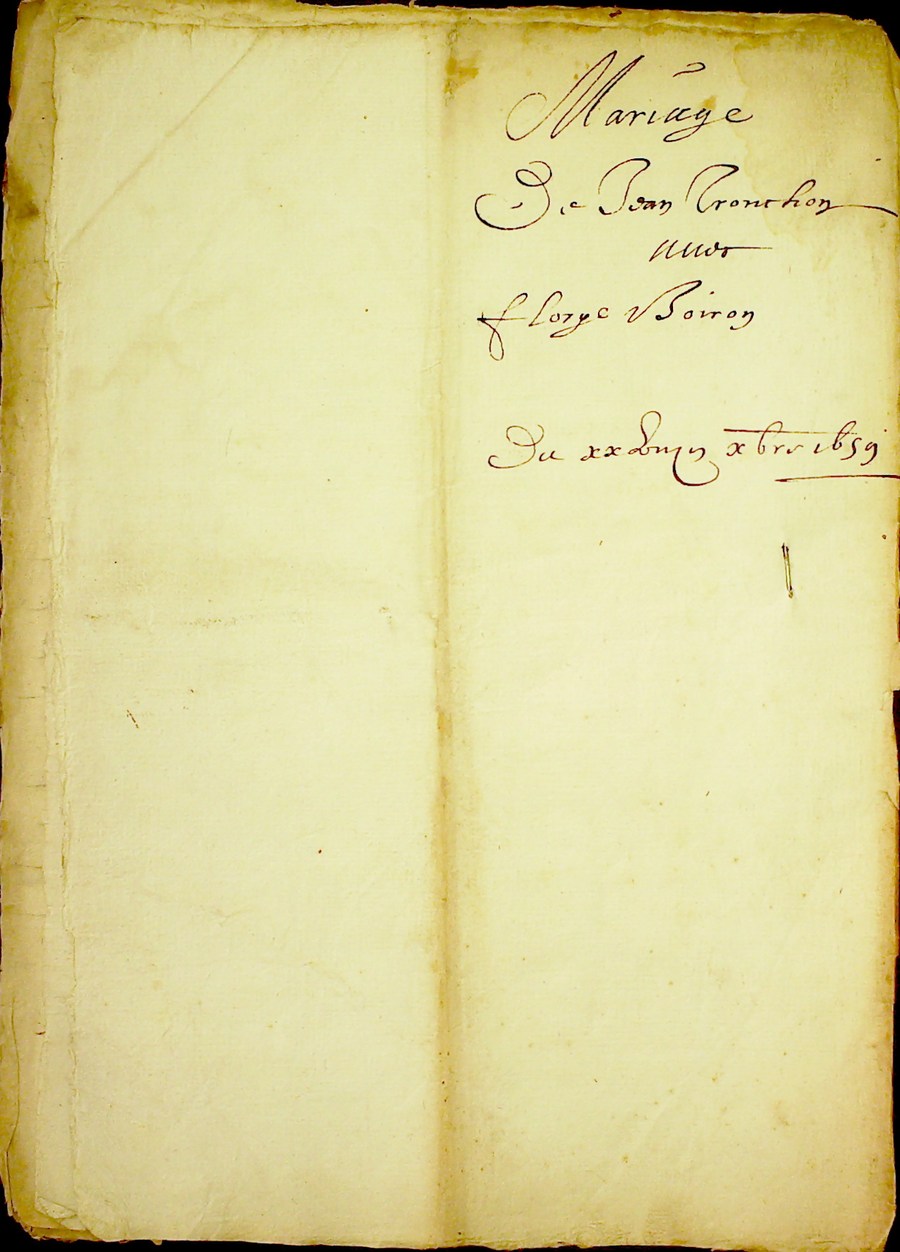 Mariage
De Jean Tronchon
auec
florye Boiron
Du xx xbre 1659